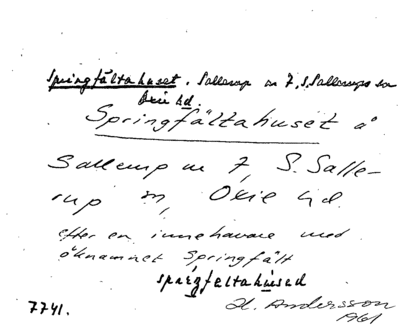 Springfältahuset. Sallerup nr 7, S. Sallerups sn
Oxie hd.
Springfältahuset å
Sallerup nr 7, S. Salle-
rup sn, Oxie hd.
efter en innehavare med
öknamnet Springfält
spriŋfæltahused
7741.
H. Andersson
1961